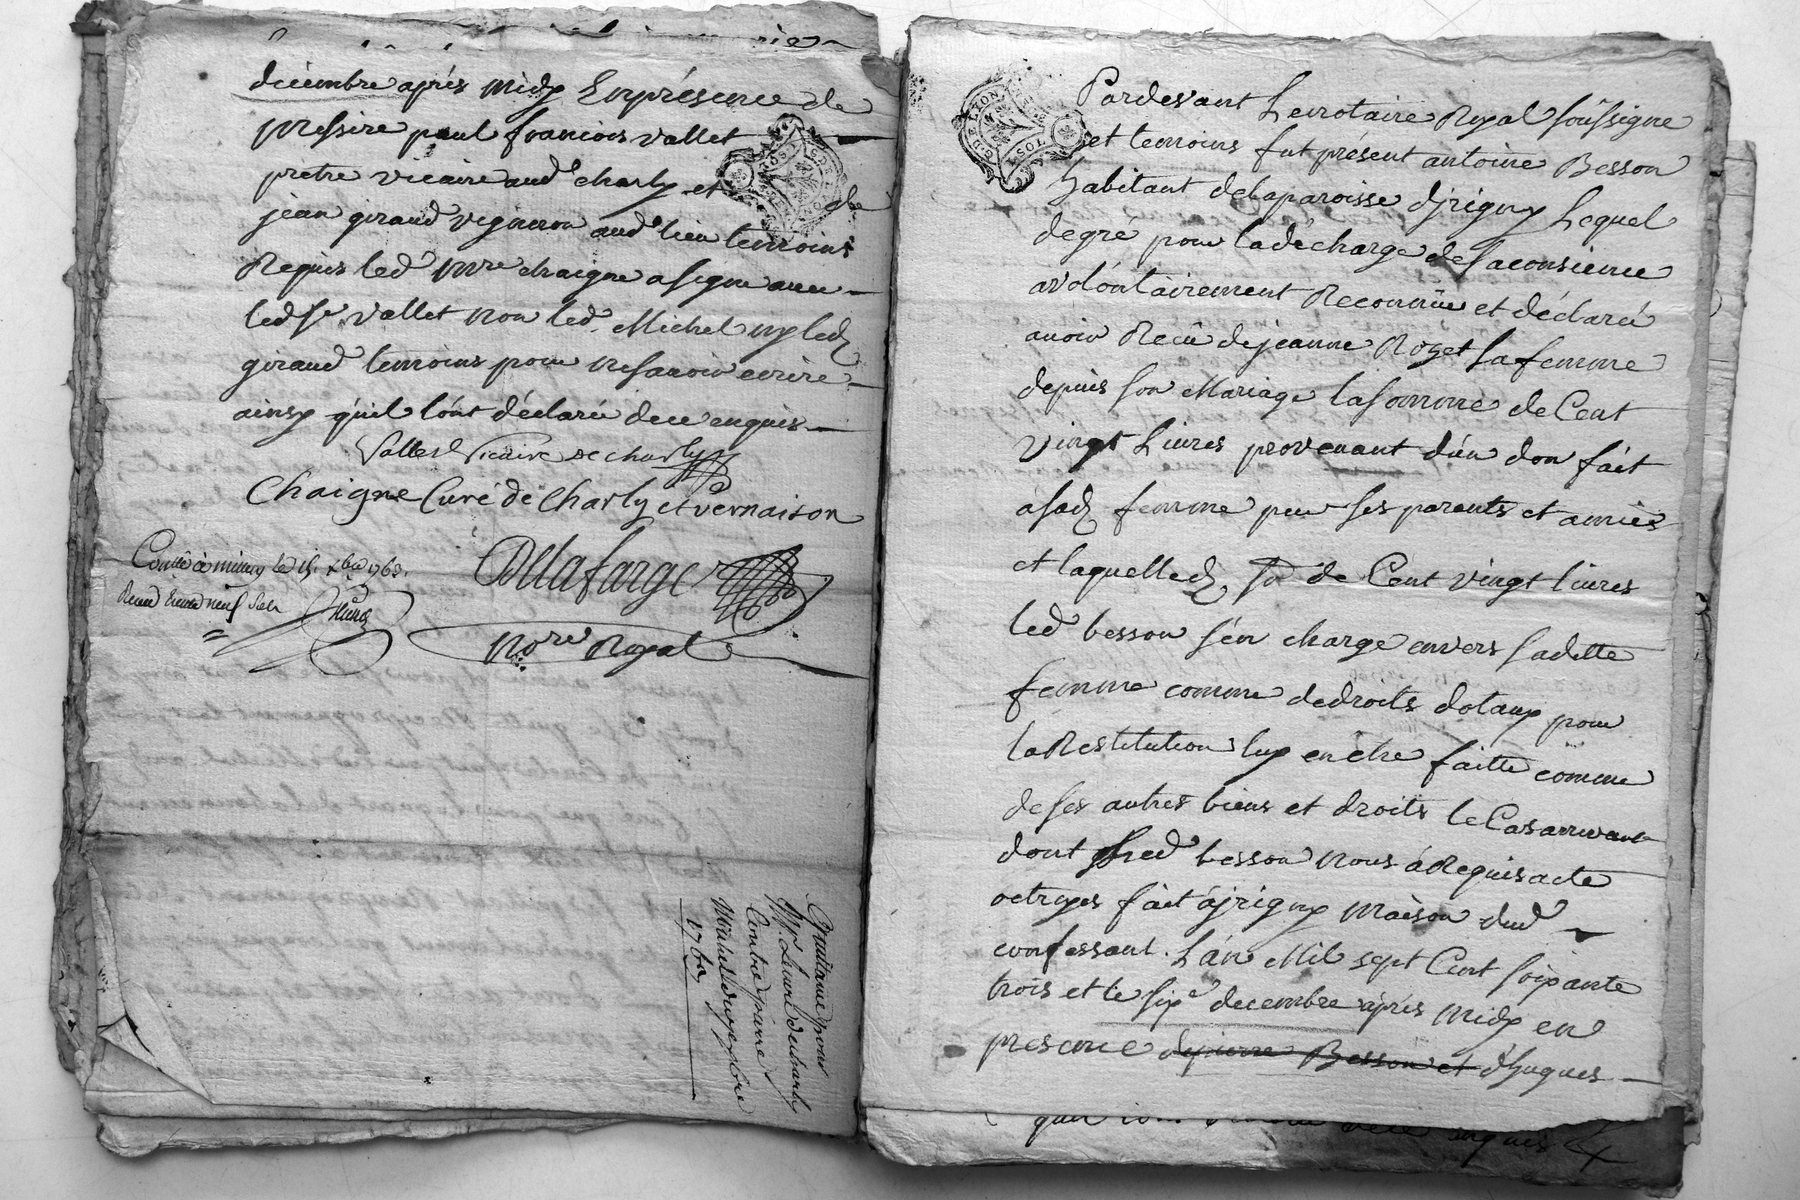 décembre après midy Enprésence de
messire paul francois vallet
prêtre vicaire aud charly et de
jean giraud vigneron aud lieu temoins
Requis led mre chaigne a signé avec
led sr vallet non led Michel ny led
giraud temoins pour nesavoir ecrire
ainsy quil lont déclaré dece enquis
Vallet Vicaire de charly
Chaigne Curé de Charly et vernaison
Conllé à millery le 15 xbre 1763.
Receu neuf sols
Dellafarge
Nore Royal
Quittance pour
Mre Le curé de charly
Contre pierre
Michel du 9 xbre
1763
G. DE LYON
SOL
Pardevant Lenotaire Royal soussigne
et temoins fut présent antoine Besson
habitant delaparoisse djrigny Lequel
degré pour ladécharge desaconsience
avolontairement Reconnüe et déclaré
avoir Recû dejeanne Roget safemme
depuis son Mariage lasomme de Cent
vingt Livres provenant dun don fait
asad femme par ses parents et amies
et laquelled se de Cent vingt livres
led besson sen charge envers sadette
femme comme dedroits dotaux pour
laRestitution luy en etre faitte comme
deses autres biens et droits le Cas arrivant
dont led besson nous aRequis acte
octroyes fait ajrigny maison dud
confessant. Lán Mil sept Cent soixante
trois et le six decembre après midy en
presence depierre Besson et d'hugues